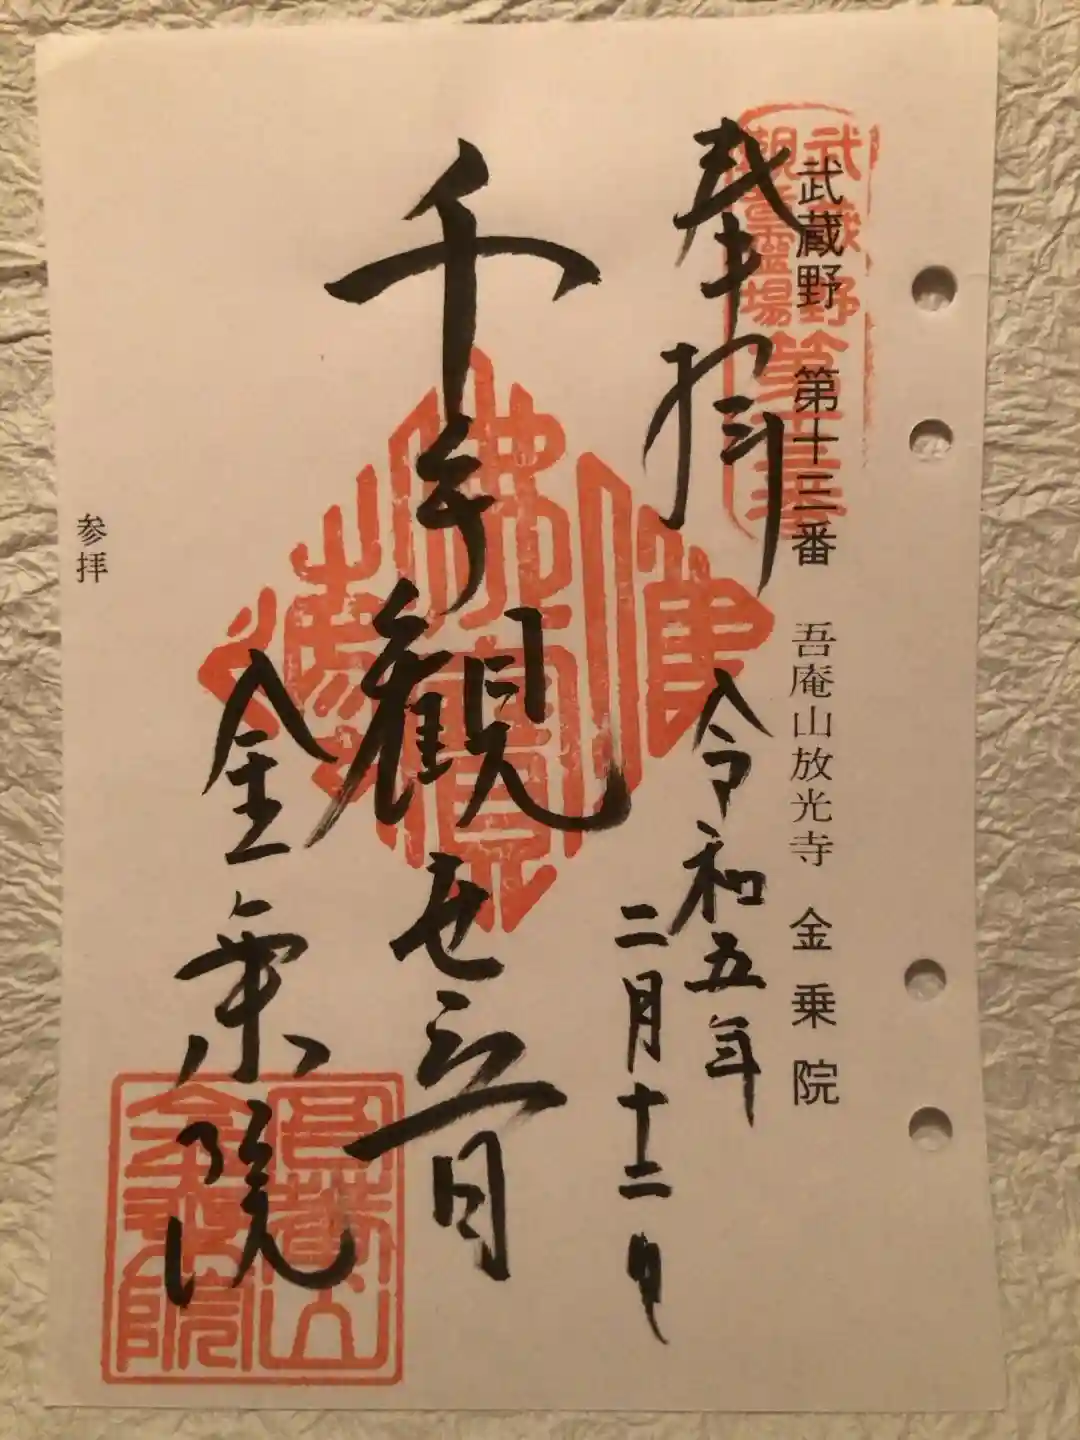 武蔵野 第十三番 吾庵山放光寺 金乗院
武蔵野
観音霊場
第十三番
奉拝
令和五年
二月十二日
千手観世音
金乗院
佛法僧寳
吾庵山
金乗院
参拝